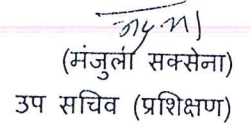 (मंजुला सक्सेना)
उप सचिव (प्रशिक्षण)